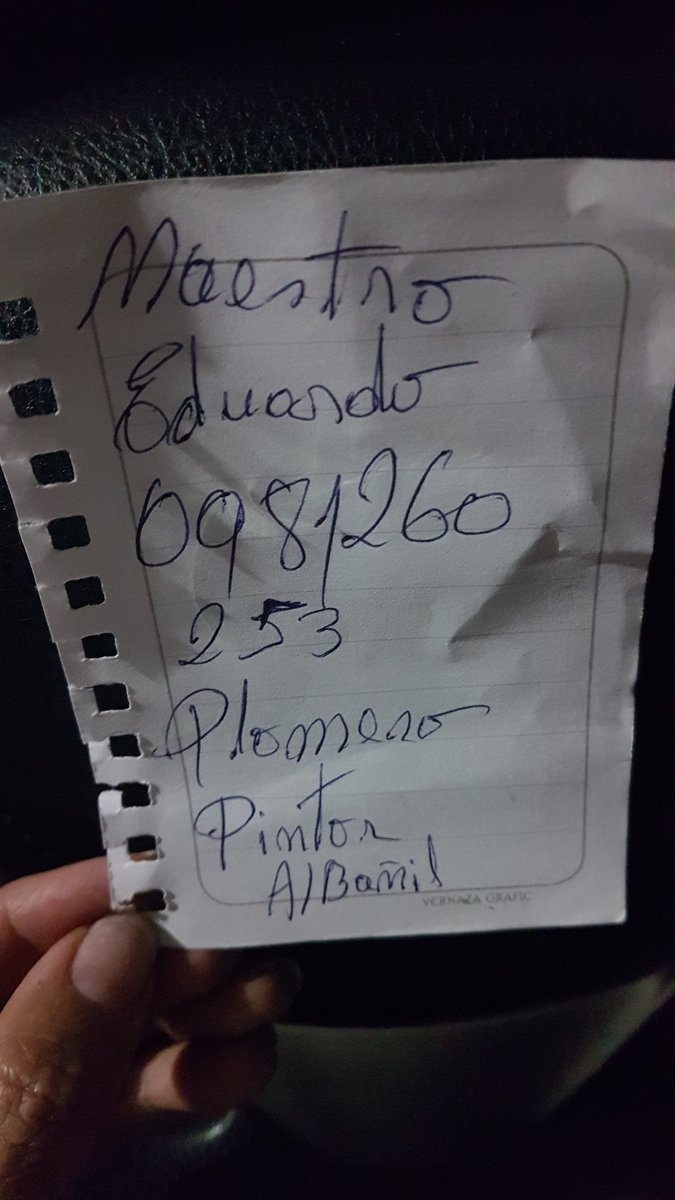 Maestro
Eduardo
0981260
253
Plomero
Pintor
AlBañil
VERNAZA GRAFIC